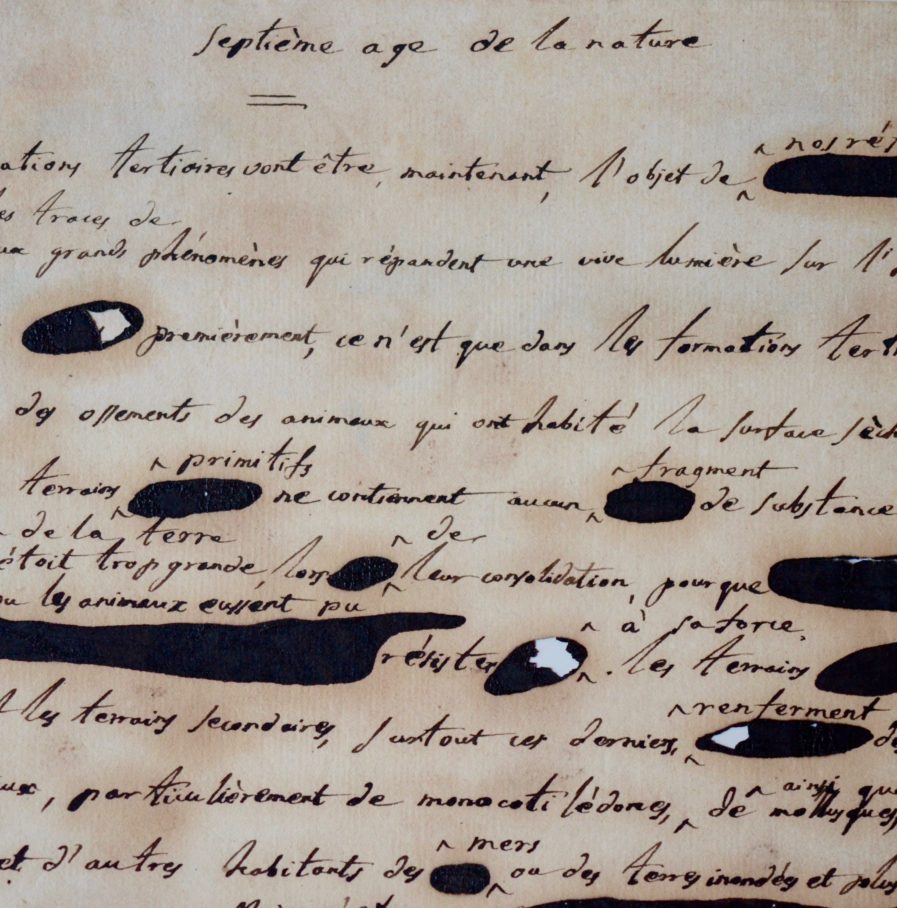 Septième age de la nature
nos rés
ations tertiaires vont être, maintenant, l'objet de
les traces de
ux grands phénomènes qui répandent une vive lumière sur l'
premièrement, ce n'est que dans les formations tert
des ossements des animaux qui ont habité la surface sèch
primitifs fragment
terrains ne contiennent aucun de substance
de la terre de
étoit trop grande, lors leur consolidation, pour que
ou les animaux eussent pu
à sa force,
résister . les terrains
renferment
t les terrains secondaires, surtout ces derniers, de
ainsi que
ux, particulièrement de monocotilédones, de mollusques,
mers
et d'autres habitants des ou des terres inondées et plus